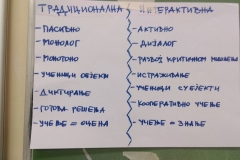 ТРАДИЦИОНАЛНА
- ПАСИВНО
- МОНОЛОГ
- МОНОТОНО
- УЧЕНИЦИ ОБЈЕКТИ
- ДИКТИРАЊЕ
- ГОТОВА РЕШЕЊА
- УЧЕЊЕ = ОЦЕНА
ИНТЕРАКТИВНА
- АКТИВНО
- ДИЈАЛОГ
- РАЗВОЈ КРИТИЧКОГ МИШЉЕЊА
- ИСТРАЖИВАЊЕ
- УЧЕНИЦИ СУБЈЕКТИ
- КООПЕРАТИВНО УЧЕЊЕ
- УЧЕЊЕ = ЗНАЊЕ